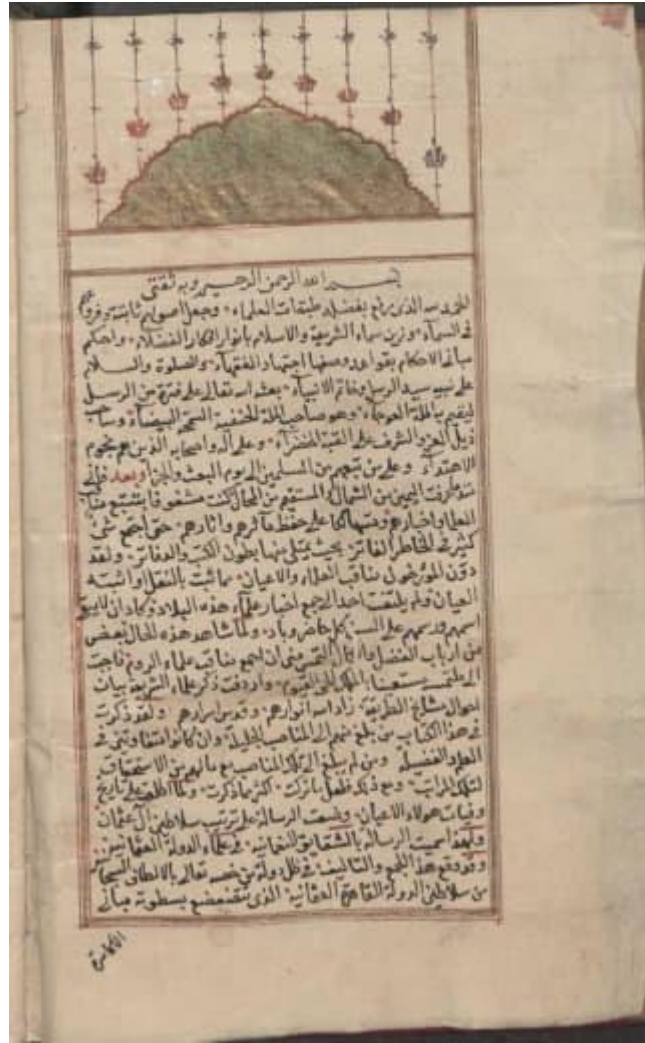 بسم الله الرحمن الرحيم وبه ثقتي
الحمد لله الذى رفع بفضله طبقات العلماء وجعل اصولهم ثابتة وفروعهم
فى السماء وزين سماء الشريعة والاسلام بانوار افكار الفضلاء واحكم
مبانى الاحكام بقواعد وضعها اجتهاد الفقهاء والصلوة والسلام
على نبيه سيد الرسل وخاتم الانبياء بعثه الله تعالى على فترة من الرسل
ليقيم به الملة العوجاء وهو صاحب الملة الحنفية السمحة البيضاء وساحب
ذيل العز والشرف على القبة الخضراء وعلى آله واصحابه الذين هم نجوم
الاهتداء وعلى من تبعهم من المسلمين الى يوم البعث والجزاء وبعد فانى
منذ عرفت اليمين من الشمال والمستقيم من المحال كنت مشغوفا بتتبع مناقب
العلماء واخبارهم ومتهالكا على حفظ مآثرهم واثارهم حتى اجتمع شئ
كثير فى الخاطر الفاتر بحيث يمتلى منها بطون الكتب والدفاتر ولقد
دون المورخون مناقب العلماء والاعيان مما ثبت بالنقل او اثبته
العيان ولم يلتفت احد الى جمع اخبار علماء هذه البلاد وكاد ان لا يبقى
اسمهم ورسمهم على السن كل حاضر وباد ولما شاهد هذه الحال بعض
من ارباب الفضل والكمال التمس منى ان اجمع مناقب علماء الروم فاجبت
الى ملتمسه مستعينا بالملك الحى القيوم واردفت ذكر علماء الشريعة ببيان
احوال مشايخ الطريقة زاد الله انوارهم وقدس اسرارهم ولقد ذكرت
فى هذا الكتاب من بلغ منهم الى المناصب الجليلة وان كانوا متفاوتين فى
العلم والفضيلة ومن لم يبلغ الى تلك المناصب مع ما لهم من الاستحقاق
لتلك المراتب ومع ذلك فلعل ما تركت اكثر مما ذكرت ولما لم اطلع على تاريخ
وفيات هولاء الاعيان وضعت الرسالة على ترتيب سلاطين آل عثمان
ولهذا سميت الرسالة بالشقايق النعمانية فى علماء الدولة العثمانية
وقد وقع هذا الجمع والتاليف فى ظل دولة من خصه تعالى بالالطاف السبحانية
من سلاطين الدولة القاهرة العثمانية الذى يتضعضع بسطوته مبانى
الاكاسرة